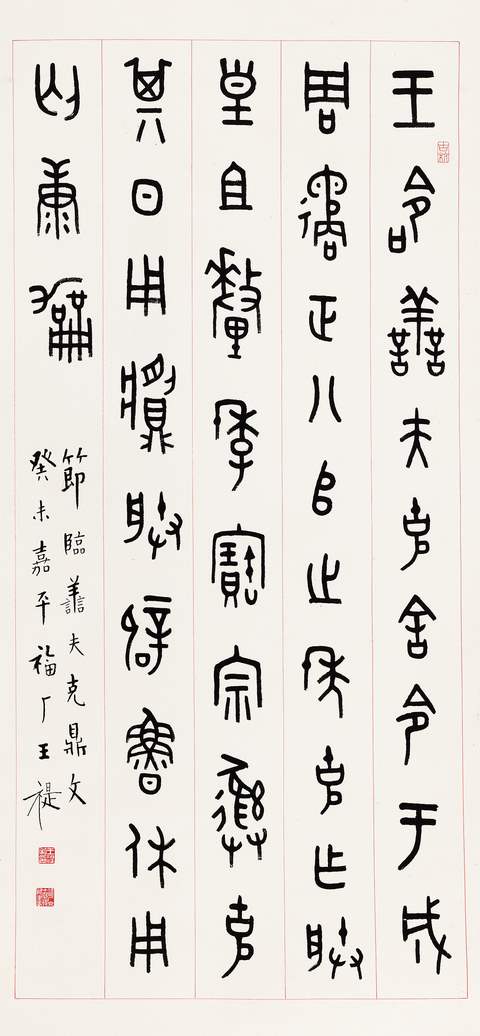 王命譱夫克舍令于成
周遹正八𠂤之年克乍朕
皇且釐季寶宗彝克
其日用䵼朕辟魯休用
匄康
節臨譱夫克鼎文
癸未嘉平福厂王禔